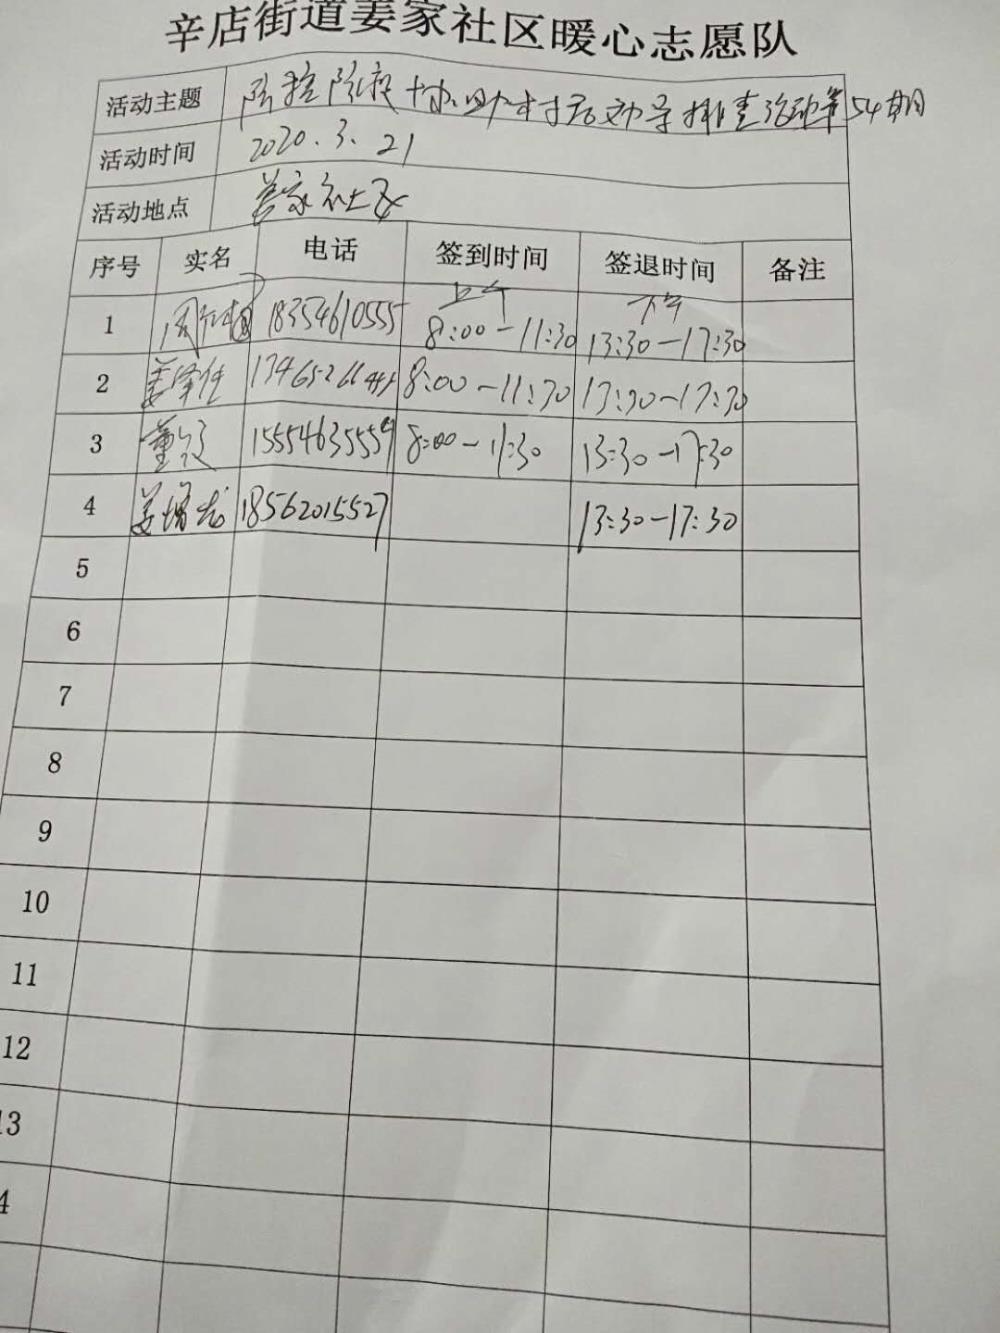 辛店街道姜家社区暖心志愿队
活动主题 防控阶段协助村居劝导排查活动第54期
活动时间 2020.3.21
活动地点 姜家社区
序号 实名 电话 签到时间 签退时间 备注
上午 下午
1 周 18354610555 8:00-11:30 13:30-17:30
2 姜 8:00-11:30 13:30-17:30
3 董 15554635559 8:00-11:30 13:30-17:30
4 姜增龙 18562015527 13:30-17:30
5
6
7
8
9
10
11
12
13
4